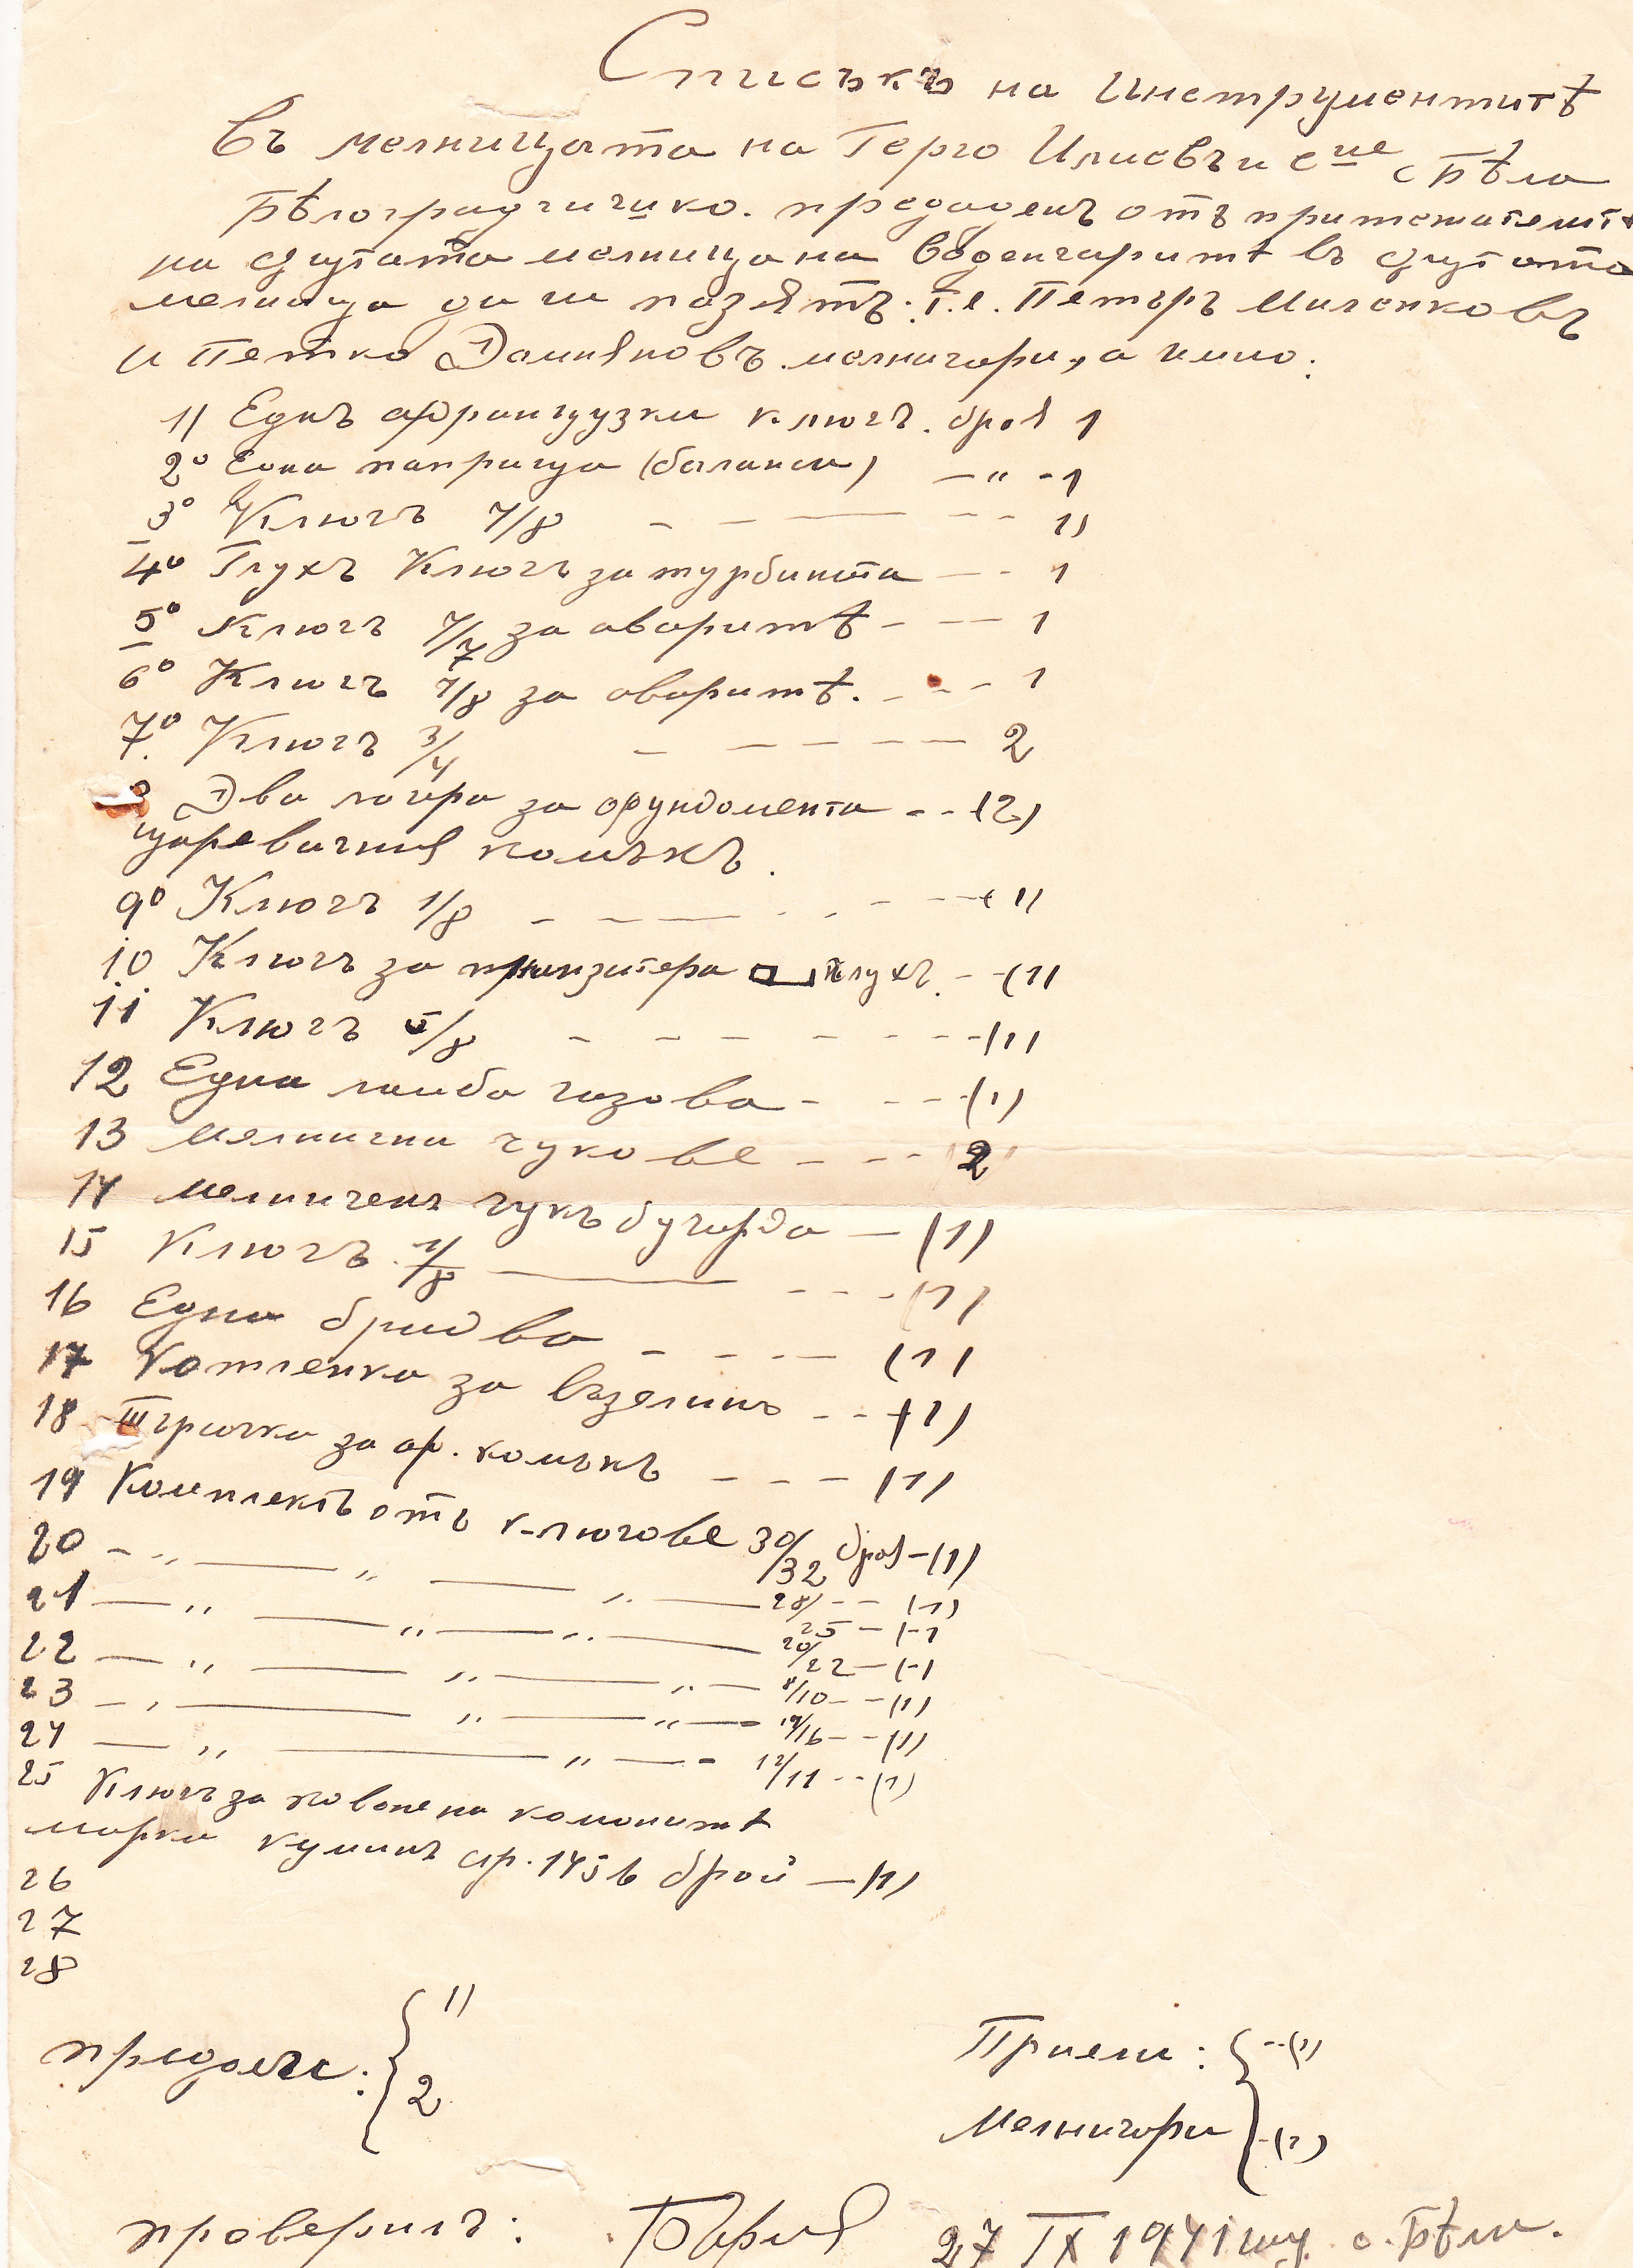 Списъкъ на Инструментитѣ
Въ мелницата на Герго Илиевъ и сие с. Бѣла
Бѣлоградчишко. предаденъ отъ притежателитѣ
на сѫщата мелница на воденчаритѣ въ сѫщата
мелница да ги пазятъ. т.е. Петъръ Миленковъ
и Петко Дамяновъ. мелничари, а имно:
1) Единъ французки ключъ. броя 1
2° Една паприца (баланси) — " - 1
3° Ключъ 7/8 - - — - - 1)
4° Глухъ Ключъ за турбината — - 1
5° Ключъ 7/7 за аваритѣ - - — 1
6° Ключъ 7/8 за аваритѣ. - - - 1
7° Ключъ 3/4 - — - - — 2
Два лагера за фундамента - - (2)
царевичния камъкъ.
9° Ключъ 1/8 - - — - - - - (1)
10 Ключъ за глухъ. - - (1)
11 Ключъ 5/8 - - - - - - - (1)
12 Една ламба газова - - - (1)
13 мелнични чукове - - - 2
14 мелниченъ чукъ бучарда — (1)
15 Ключъ 7/8 ——— - - - (1)
16 Една брадва - - - — (1)
17 Котленка за вазелинъ - - (1)
18 за фр. камъкъ - - - (1)
19 Комплектъ отъ ключове 30/32 броя - (1)
20 - " —— " —— " — 28/25 - - (1)
21 — " —— " —— " —— 20/22 - (1)
22 — " —— " —— " — 8/10 - - (1)
23 - " —— " —— " — 14/16 - - (1)
24 — " —— " — - 12/11 - - (1)
25 Ключъ за коване на камънитѣ
марка фр. 145 в брой — (1)
26
27
28
предали: { 1)
2
Приели: { - - (1)
Мелничари - (2)
проверилъ:
27 IX 1941 год. с. Бѣла.